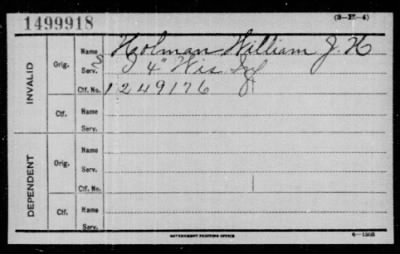 1499918
(3-27-4)
INVALID
Orig.
Name Holman William J. H
S
Serv. I 4" Wis Inf
Ctf. No. 1249176
Ctf.
Name
Serv.
DEPENDENT
Orig.
Name
Serv.
Ctf. No.
Ctf.
Name
Serv.
GOVERNMENT PRINTING OFFICE
6-1508